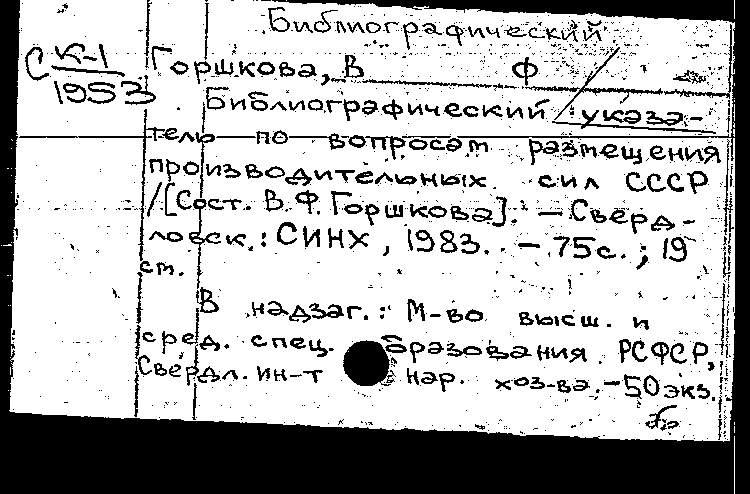 Библиографический
С К-1
1953
Горшкова, В Ф
Библиографический указа-
тель по вопросам размещения
производительных сил СССР
/[Сост. В.Ф. Горшкова]. — Сверд-
ловск.: СИНХ, 1983. — 75с.; 19
см.
В надзаг.: М-во высш. и
сред. спец. образования РСФСР,
Свердл. ин-т нар. хоз-ва. — 50 экз.